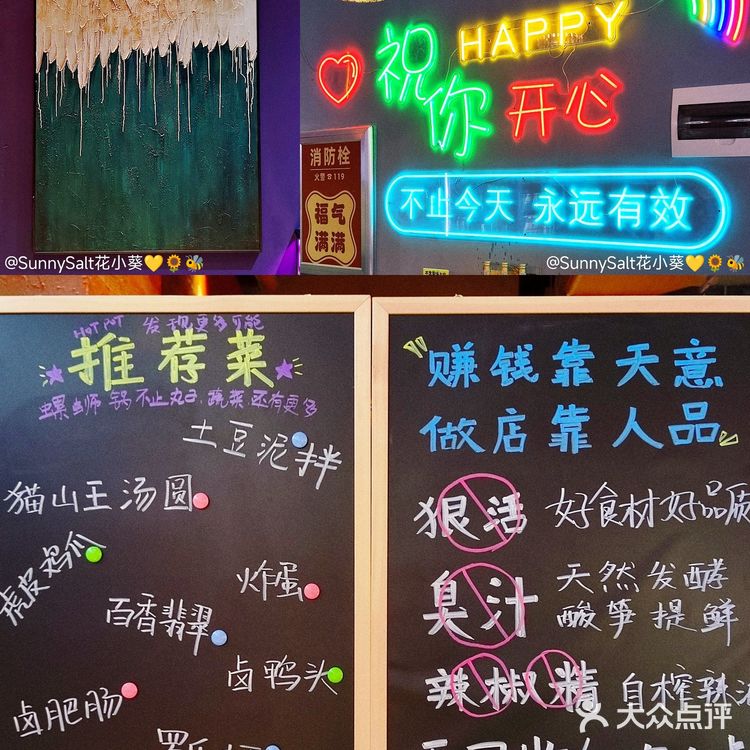 HAPPY
祝你开心
不止今天 永远有效
消防栓
火警☎119
福气
满满
@SunnySalt花小葵💛🌻🐝
@SunnySalt花小葵💛🌻🐝
HOT POT 发现更多可能
推荐菜
螺蛳 锅 不止丸 蔬菜 还有更多
土豆泥拌
猫山王汤圆
虎皮鸡爪
炸蛋
百香翡翠
卤鸭头
卤肥肠
赚钱靠天意
做店靠人品
狠活 好食材好品质
臭汁 天然发酵
酸笋提鲜
辣椒精 自榨辣
大众点评